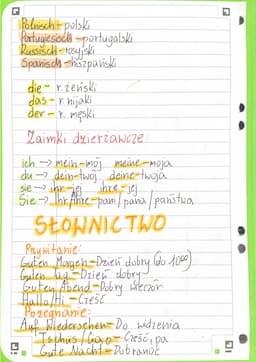 Polnisch - polski
Portugiesisch - portugalski
Russisch - rosyjski
Spanisch - hiszpański
die - r. żeński
das - r. nijaki
der - r. męski
Zaimki dzierżawcze
ich → mein-mój meine-moja
du → dein-twój deine-twoja
sie → ihr-jej ihre-jej
Sie → Ihr/Ihre-pam/pana/państwa
SŁOWNICTWO
Przywitanie:
Guten Morgen-Dzień dobry (do 10⁰⁰)
Guten Tag-Dzień dobry
Guten Abend-Dobry wieczór
Hallo/Hi-Cześć
Pożegnanie:
Auf Wiedersehen-Do widzenia
Tschüs/Ciao-Cześć, pa
Gute Nacht-Dobranoc